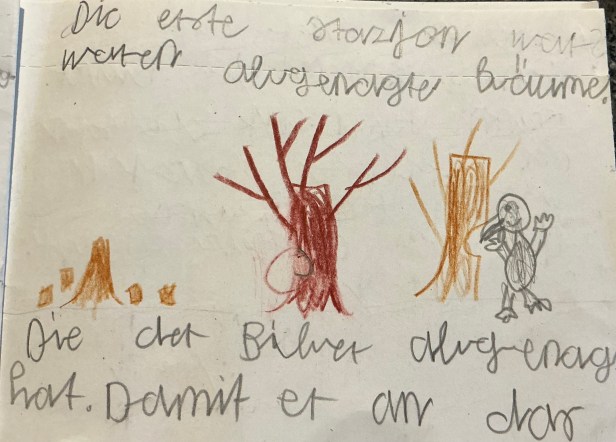 Die erste stazjon war
waren abgenagte Bäume.
Die der Biber abgenag
hat. Damit er an das